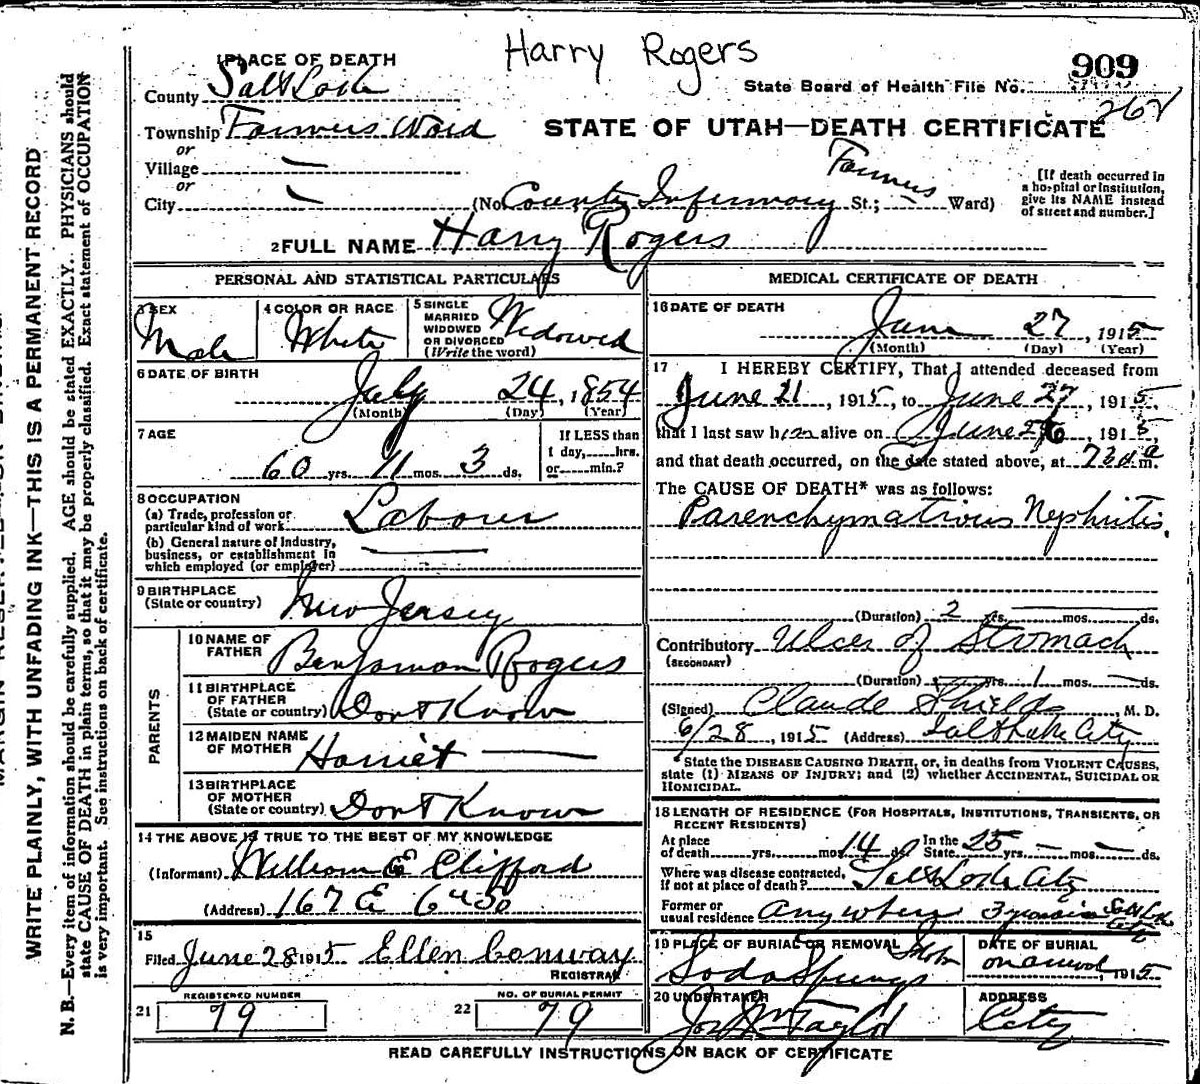 Harry Rogers
909
1 PLACE OF DEATH
State Board of Health File No.
268
County Salt Lake
Township Farmers Ward
or
Village —
or
City —
STATE OF UTAH—DEATH CERTIFICATE
(No. County Infirmary St.; Farmers Ward)
[If death occurred in
a hospital or institution,
give its NAME instead
of street and number.]
2 FULL NAME Harry Rogers
PERSONAL AND STATISTICAL PARTICULARS
3 SEX
Male
4 COLOR OR RACE
White
5 SINGLE
MARRIED
WIDOWED
OR DIVORCED
(Write the word)
Widowed
6 DATE OF BIRTH
July 24, 1854
(Month) (Day) (Year)
7 AGE
60 yrs. 11 mos. 3 ds.
If LESS than
1 day, hrs.
or min.?
8 OCCUPATION
(a) Trade, profession or
particular kind of work Labour
(b) General nature of Industry,
business, or establishment in
which employed (or employer)
9 BIRTHPLACE
(State or country) New Jersey
PARENTS
10 NAME OF
FATHER Benjaman Rogers
11 BIRTHPLACE
OF FATHER
(State or country) Dont Know
12 MAIDEN NAME
OF MOTHER Harriet —
13 BIRTHPLACE
OF MOTHER
(State or country) Dont Know
14 THE ABOVE IS TRUE TO THE BEST OF MY KNOWLEDGE
(Informant) William E Clifford
(Address) 167 E 6th So
15
Filed June 28 1915 Ellen Conway
REGISTRAR
21 REGISTERED NUMBER
79
22 NO. OF BURIAL PERMIT
79
MEDICAL CERTIFICATE OF DEATH
16 DATE OF DEATH
June 27, 1915
(Month) (Day) (Year)
17 I HEREBY CERTIFY, That I attended deceased from
June 21, 1915, to June 27, 1915,
that I last saw him alive on June 26, 1915,
and that death occurred, on the date stated above, at 730 a m.
The CAUSE OF DEATH* was as follows:
Parenchymatious Nephritis.
(Duration) 2 yrs. mos. ds.
Contributory Ulcer of Stomach
(SECONDARY)
(Duration) yrs. 1 mos. — ds.
(Signed) Claude Shields, M. D.
6/28, 1915 (Address) Salt Lake City
*State the DISEASE CAUSING DEATH, or, in deaths from VIOLENT CAUSES,
state (1) MEANS OF INJURY; and (2) whether ACCIDENTAL, SUICIDAL OR
HOMICIDAL.
18 LENGTH OF RESIDENCE (FOR HOSPITALS, INSTITUTIONS, TRANSIENTS, OR
RECENT RESIDENTS)
At place
of death yrs. mos. 14 ds. In the
State 25 yrs. — mos. — ds.
Where was disease contracted,
if not at place of death? Salt Lake City
Former or
usual residence Any where 3 years in Salt Lake City
19 PLACE OF BURIAL OR REMOVAL
Soda Springs Idaho
DATE OF BURIAL
on arrival, 1915
20 UNDERTAKER
Jos Wm Taylor
ADDRESS
City
READ CAREFULLY INSTRUCTIONS ON BACK OF CERTIFICATE
WRITE PLAINLY, WITH UNFADING INK—THIS IS A PERMANENT RECORD
N. B.—Every item of information should be carefully supplied. AGE should be stated EXACTLY. PHYSICIANS should
state CAUSE OF DEATH in plain terms, so that it may be properly classified. Exact statement of OCCUPATION
is very important. See instructions on back of certificate.